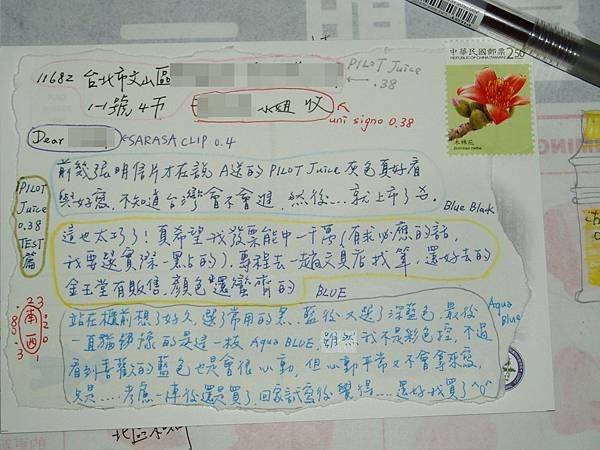 中華民國郵票
REPUBLIC OF CHINA (TAIWAN)
2.50
木棉花
11682 台北市文山區
PILOT Juice
.38
1-1號 4F
小姐 收
uni signo 0.38
Dear
SARASA CLIP 0.4
PILOT
Juice
0.38
TEST
篇
前幾張明信片才在說A送的PILOT Juice 灰色真好看
與好寫,不知道台灣會不會進,然後...就上市了
Blue Black
這也太巧了!真希望我發票能中一千萬(有求必應的話,
我要選實際一點的),專程去一趟文具店找筆,還好去的
金玉堂有販售,顏色還蠻齊的
BLUE
站在櫃前想了好久,選了常用的黑、藍後又選了深藍色,最後
Aqua
Blue
一直猶豫的是這一枝 Aqua BLUE,雖然我不是彩色控,不過
看到喜歡的藍色也是會很心動,但心動平常又不會拿來寫,
於是....考慮一陣後還是買了,回家試寫後覺得...還好我買了^o^
南西